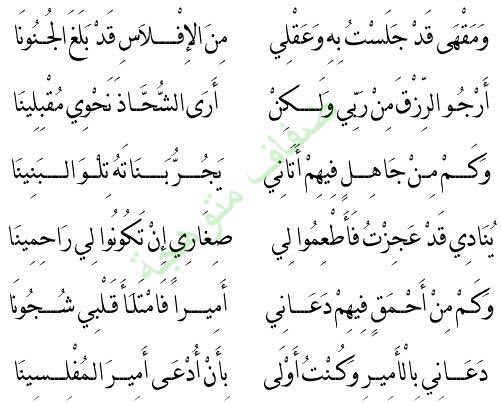 وَمَقْهَى قَدْ جَلَسْتُ بِهِ وَعَقْلِي مِنَ الإِفْلَاسِ قَدْ بَلَغَ الجُنُونَا
أَرْجُو الرِّزْقَ مِنْ رَبِّي وَلَكِنْ أَرَى الشُّحَّاذَ نَحْوِي مُقْبِلِينَا
وَكَمْ مِنْ جَاهِلٍ فِيهِمْ أَتَانِي يَجُرُّ بَنَاتَهُ تِلْوَ البَنِينَا
يُنَادِي قَدْ عَجِزْتُ فَأَطْعِمُوا لِي صِغَارِي إِنْ تَكُونُوا لِي رَاحِمِينَا
وَكَمْ مِنْ أَحْمَقٍ فِيهِمْ دَعَانِي أَمِيراً فَامْتَلَأَ قَلْبِي شُجُونَا
دَعَانِي بِالْأَمِيرِ وَكُنْتُ أَوْلَى بِأَنْ أُدْعَى أَمِيرَ المُفْلِسِينَا
ضفاف متوهجة